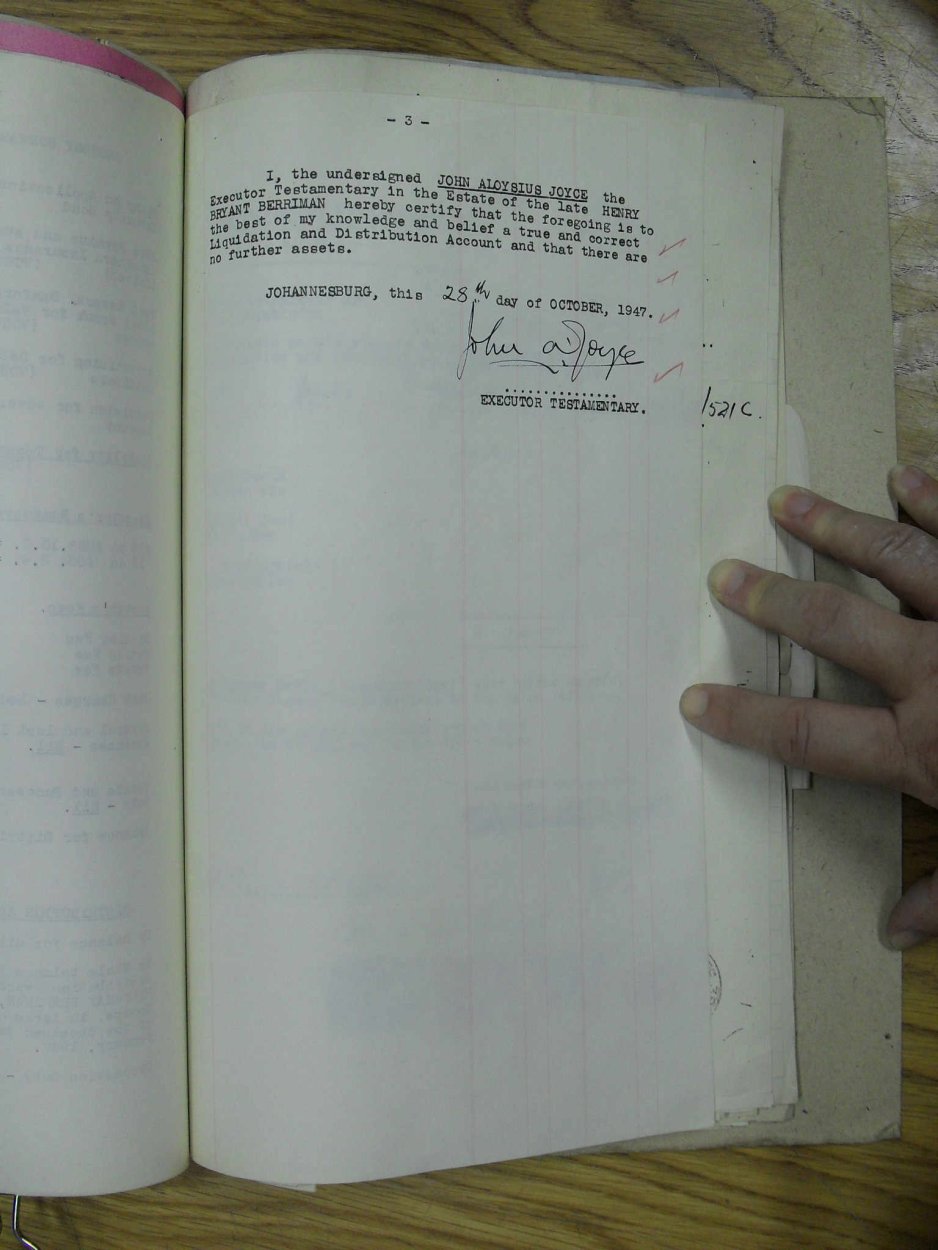 - 3 -
I, the undersigned JOHN ALOYSIUS JOYCE the
Executor Testamentary in the Estate of the late HENRY
BRYANT BERRIMAN hereby certify that the foregoing is to
the best of my knowledge and belief a true and correct
Liquidation and Distribution Account and that there are
no further assets.
JOHANNESBURG, this 28th day of OCTOBER, 1947.
John A Joyce
................
EXECUTOR TESTAMENTARY.
/521C.